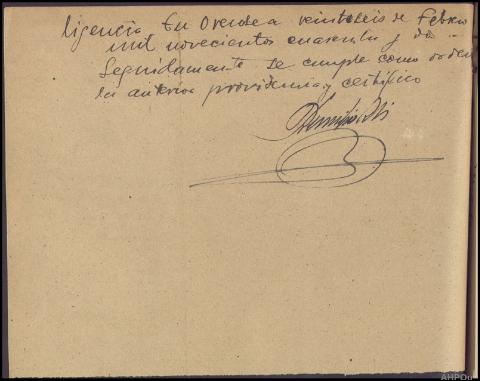 ligencia En Orense a veintiseis de Febre
mil novecientos cuarenta y do
Seguidamente se cumple como orden
la anterior providencia y certifico
AHPOu